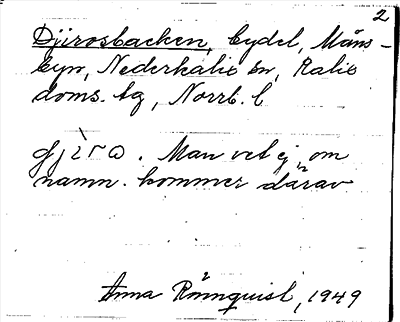 2
Djirosbacken, bydel, Måns-
byn, Nederkalix sn, Kalix
doms. tg, Norrb. l
Man vet ej, om
namn. kommer därav
Anna Rönnquist, 1949